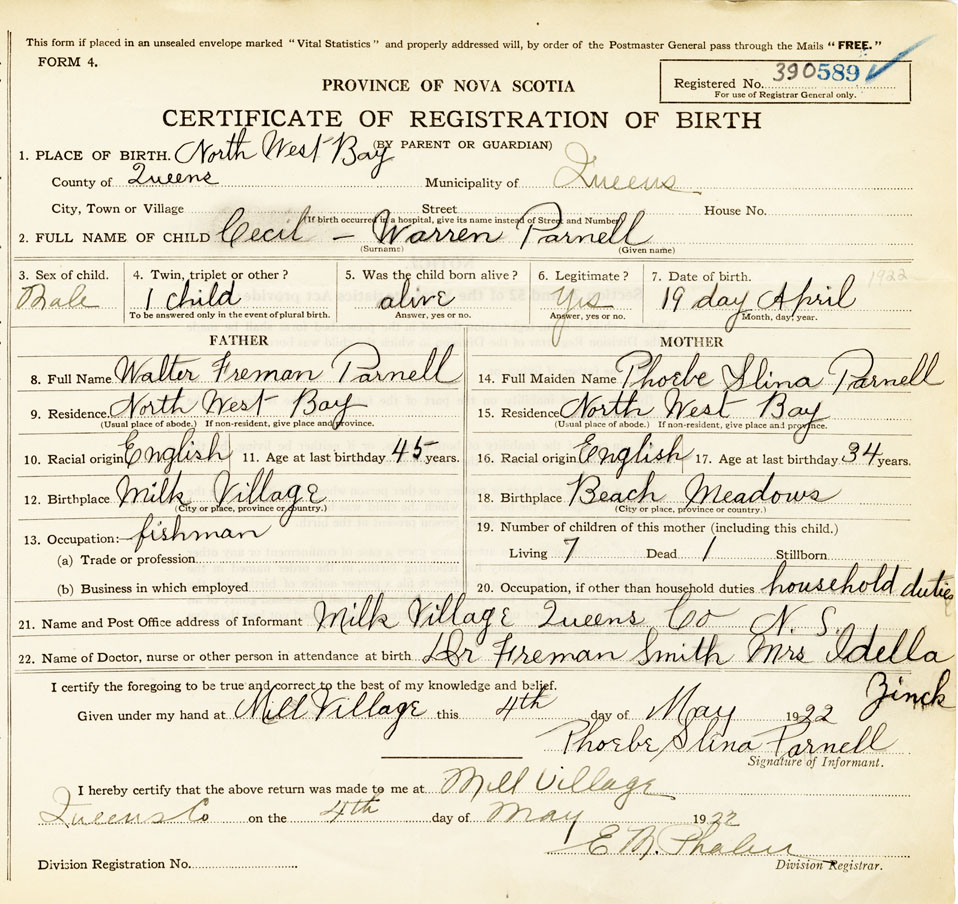 This form if placed in an unsealed envelope marked "Vital Statistics" and properly addressed will, by order of the Postmaster General pass through the Mails "FREE."
FORM 4.
Registered No. 390589
For use of Registrar General only.
PROVINCE OF NOVA SCOTIA
CERTIFICATE OF REGISTRATION OF BIRTH
(BY PARENT OR GUARDIAN)
1. PLACE OF BIRTH. North West Bay
County of Queens Municipality of Queens
City, Town or Village Street House No.
(If birth occurred in a hospital, give its name instead of Street and Number)
2. FULL NAME OF CHILD Cecil - Warren Parnell
(Surname) (Given name)
3. Sex of child. 4. Twin, triplet or other? 5. Was the child born alive? 6. Legitimate? 7. Date of birth. 1922
Male 1 child alive Yes 19 day April
To be answered only in the event of plural birth. Answer, yes or no. Answer, yes or no. Month, day, year.
FATHER MOTHER
8. Full Name Walter Freman Parnell 14. Full Maiden Name Phoebe Slina Parnell
9. Residence. North West Bay 15. Residence North West Bay
(Usual place of abode.) If non-resident, give place and province. (Usual place of abode.) If non-resident, give place and province.
10. Racial origin English 11. Age at last birthday 45 years. 16. Racial origin English 17. Age at last birthday 34 years.
12. Birthplace Milk Village 18. Birthplace Beach Meadows
(City or place, province or country.) (City or place, province or country.)
13. Occupation:- fishman 19. Number of children of this mother (including this child.)
(a) Trade or profession Living 7 Dead 1 Stillborn
(b) Business in which employed 20. Occupation, if other than household duties household duties
21. Name and Post Office address of Informant Milk Village Queens Co N. S.
22. Name of Doctor, nurse or other person in attendance at birth Dr Freman Smith Mrs Idella Zinck
I certify the foregoing to be true and correct to the best of my knowledge and belief.
Given under my hand at Mill Village this 4th day of May 1922
Phoebe Slina Parnell
Signature of Informant.
I hereby certify that the above return was made to me at Mill Village
Queens Co on the 4th day of May 1922
E M. Phalen
Division Registration No. Division Registrar.